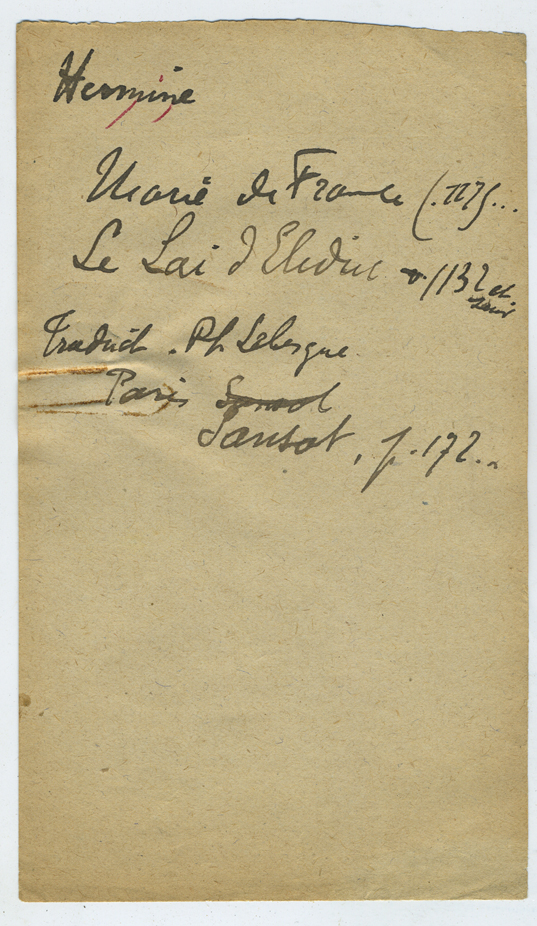 Hermine
Marie de France (.1175...
Le Lai d'Eliduc v. 1132 et
suiv
Traduct. Ph Lebesgue
Paris Sansot
Sansot, p. 172..